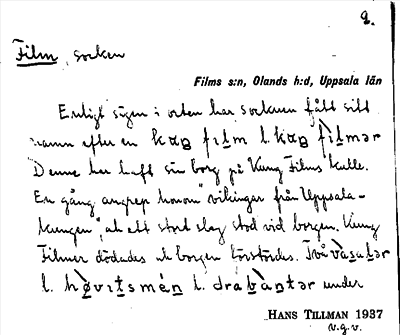 2.
Film, socken
Films s:n, Olands h:d, Uppsala län
Enligt sägen i orten har socknen fått sitt
namn efter en kuŋ film l. kuŋ filmər
Denne har haft sin borg på Kung Films kulle.
En gång angrep honom "vikingar från Uppsala-
kungen", ett stort slag stod vid borgen. Kung
Filmer dödades och borgen förstördes. Två vasalər
l. høvitsmén l. drabàntər under
HANS TILLMAN 1937
v.g.v.